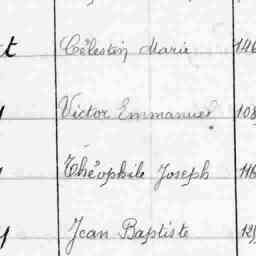 t Célestin Marie 146
y Victor Emmanuel 108
y Théophile Joseph 116
y Jean Baptiste 125